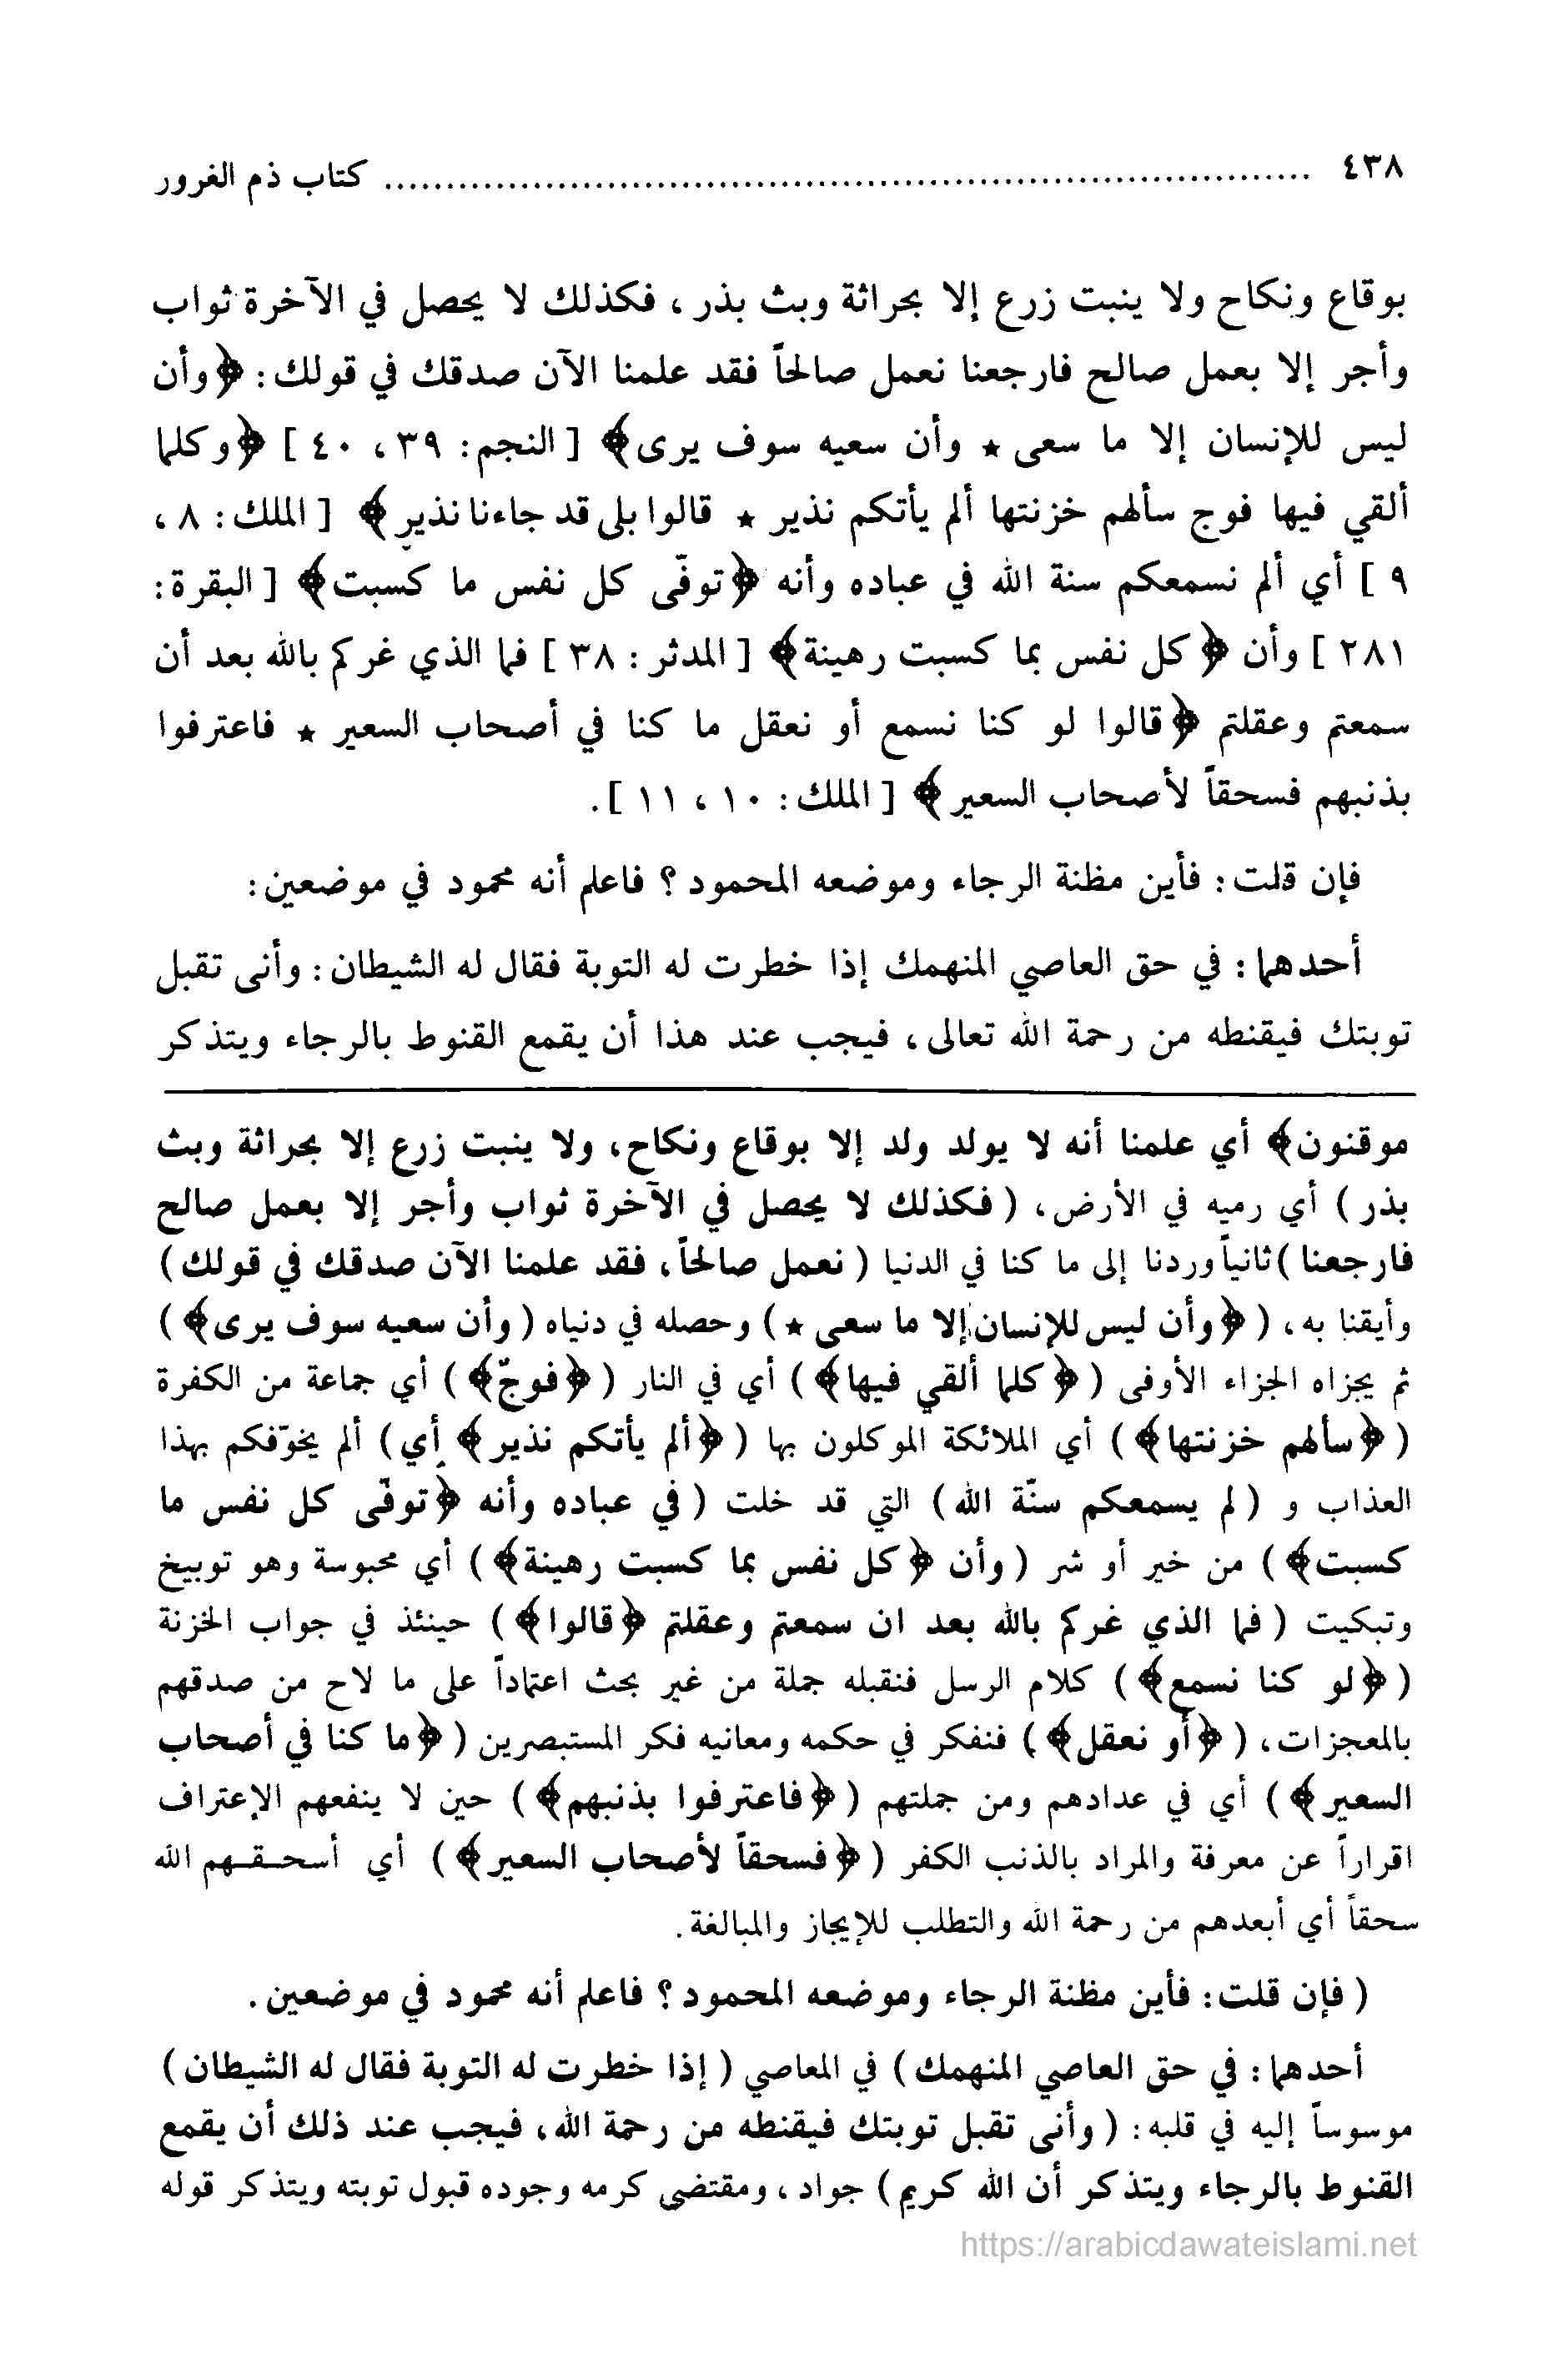 ٤٣٨ ........................................ كتاب ذم الغرور
بوقاع ونكاح ولا ينبت زرع إلا بحراثة وبث بذر ، فكذلك لا يحصل في الآخرة ثواب
وأجر إلا بعمل صالح فارجعنا نعمل صالحاً فقد علمنا الآن صدقك في قولك : ﴿وأن
ليس للإنسان إلا ما سعى ★ وأن سعيه سوف يرى﴾ [ النجم : ٣٩ ، ٤٠ ] ﴿وكلما
ألقي فيها فوج سألهم خزنتها ألم يأتكم نذير ★ قالوا بلى قد جاءنا نذير﴾ [ الملك : ٨ ،
٩ ] أي ألم نسمعكم سنة الله في عباده وأنه ﴿توفّى كل نفس ما كسبت﴾ [ البقرة :
٢٨١ ] وأن ﴿كل نفس بما كسبت رهينة﴾ [ المدثر : ٣٨ ] فما الذي غركم بالله بعد أن
سمعتم وعقلتم ﴿قالوا لو كنا نسمع أو نعقل ما كنا في أصحاب السعير ★ فاعترفوا
بذنبهم فسحقاً لأصحاب السعير﴾ [ الملك : ١٠ ، ١١ ].
فإن قلت : فأين مظنة الرجاء وموضعه المحمود ؟ فاعلم أنه محمود في موضعين :
أحدهما : في حق العاصي المنهمك إذا خطرت له التوبة فقال له الشيطان : وأنى تقبل
توبتك فيقنطه من رحمة الله تعالى ، فيجب عند هذا أن يقمع القنوط بالرجاء ويتذكر
موقنون﴾ أي علمنا أنه لا يولد ولد إلا بوقاع ونكاح، ولا ينبت زرع إلا بحراثة وبث
بذر ) أي رميه في الأرض، ( فكذلك لا يحصل في الآخرة ثواب وأجر إلا بعمل صالح
فارجعنا ) ثانياً وردنا إلى ما كنا في الدنيا ( نعمل صالحاً، فقد علمنا الآن صدقك في قولك )
وأيقنا به، ( ﴿وأن ليس للإنسان إلا ما سعى ★ ) وحصله في دنياه ( وأن سعيه سوف يرى﴾ )
ثم يجزاه الجزاء الأوفى ( ﴿كلما ألقي فيها﴾ ) أي في النار ( ﴿فوجٌ﴾ ) أي جماعة من الكفرة
( ﴿سألهم خزنتها﴾ ) أي الملائكة الموكلون بها ( ﴿ألم يأتكم نذير﴾ أي ) ألم يخوّفكم بهذا
العذاب و ( لم يسمعكم سنّة الله ) التي قد خلت ( في عباده وأنه ﴿توفّى كل نفس ما
كسبت﴾ ) من خير أو شر ( وأن ﴿كل نفس بما كسبت رهينة﴾ ) أي محبوسة وهو توبيخ
وتبكيت ( فما الذي غركم بالله بعد ان سمعتم وعقلتم ﴿قالوا﴾ ) حينئذ في جواب الخزنة
( ﴿لو كنا نسمع﴾ ) كلام الرسل فنقبله جملة من غير بحث اعتماداً على ما لاح من صدقهم
بالمعجزات، ( ﴿أو نعقل﴾ ) فنفكر في حكمه ومعانيه فكر المستبصرين ( ﴿ما كنا في أصحاب
السعير﴾ ) أي في عدادهم ومن جملتهم ( ﴿فاعترفوا بذنبهم﴾ ) حين لا ينفعهم الإعتراف
اقراراً عن معرفة والمراد بالذنب الكفر ( ﴿فسحقاً لأصحاب السعير﴾ ) أي أسحقهم الله
سحقاً أي أبعدهم من رحمة الله والتطلب للإيجاز والمبالغة.
( فإن قلت : فأين مظنة الرجاء وموضعه المحمود ؟ فاعلم أنه محمود في موضعين .
أحدهما : في حق العاصي المنهمك ) في المعاصي ( إذا خطرت له التوبة فقال له الشيطان )
موسوساً إليه في قلبه : ( وأنى تقبل توبتك فيقنطه من رحمة الله، فيجب عند ذلك أن يقمع
القنوط بالرجاء ويتذكر أن الله كريم ) جواد ، ومقتضى كرمه وجوده قبول توبته ويتذكر قوله
https://arabicdawateislami.net